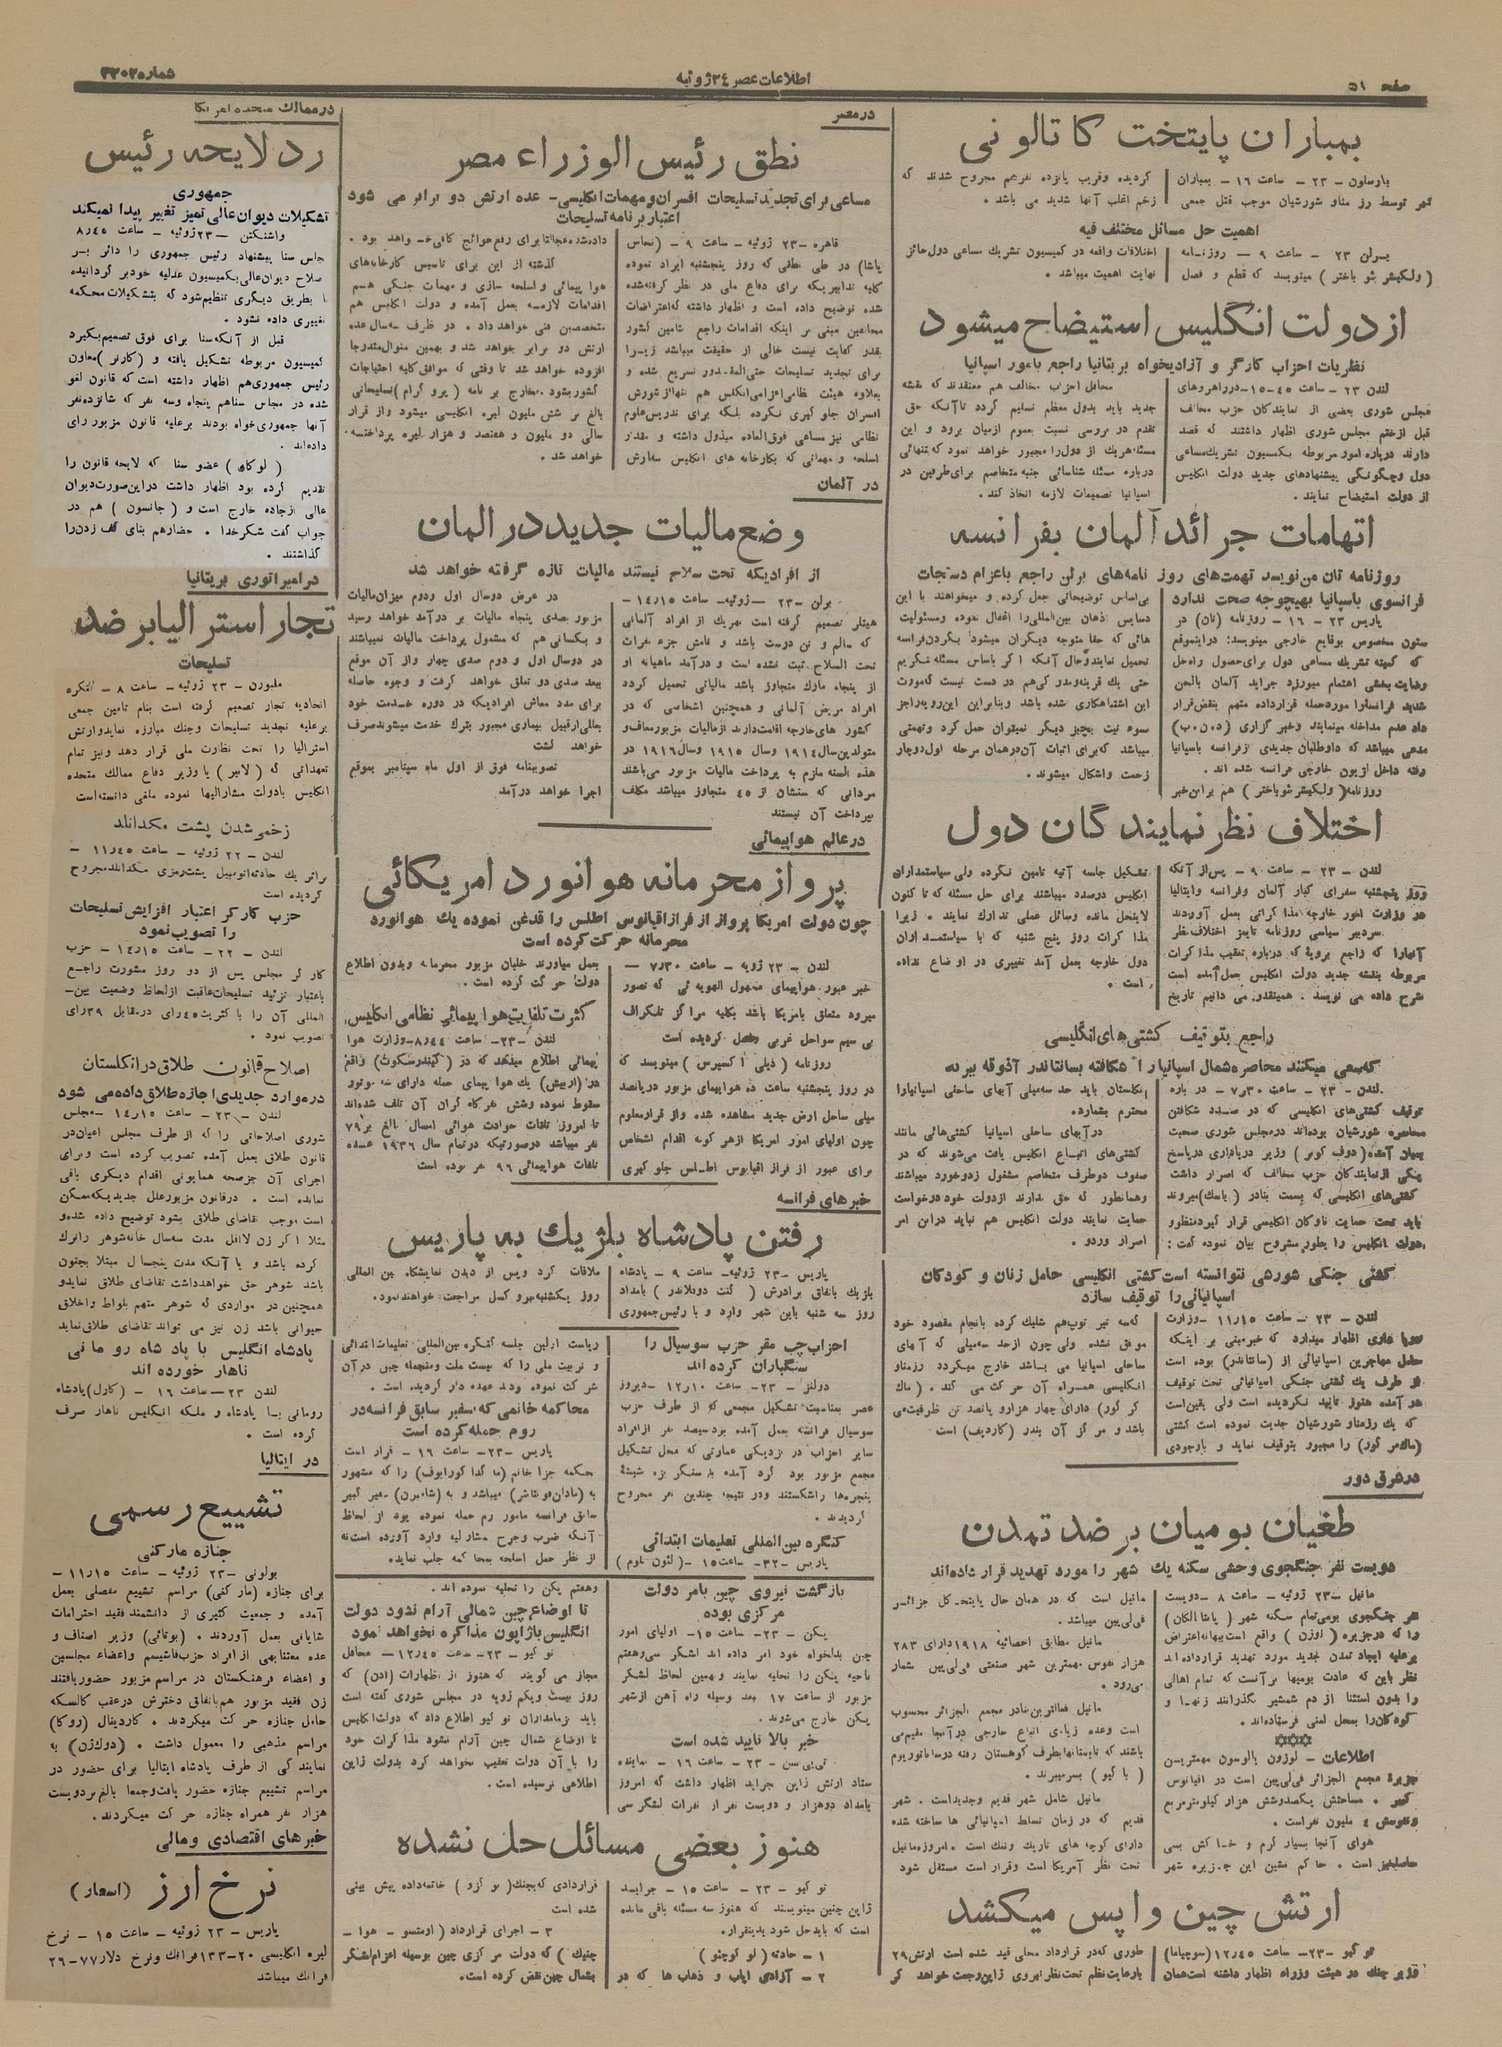 صفحه ۵۱
اطلاعات عصر ۲۴ ژوئیه
شماره ۳۳۰۲
بمباران پایتخت کاتالونی
بارسلون - ۲۳ - ساعت ۱۶ - بمباران
شهر توسط رزمناو شورشیان موجب قتل جمعی
گردیده و قریب پانزده نفر هم مجروح شدند که
زخم اغلب آنها شدید می باشد .
اهمیت حل مسائل مختلف فیه
برلن ۲۳ - ساعت ۹ - روزنامه
( ولکیشر بئو باختر ) مینویسد که قطع و فصل
اختلافات واقعه در کمیسیون تشریک مساعی دول حائز
نهایت اهمیت میباشد .
از دولت انگلیس استیضاح میشود
نظریات احزاب کارگر و آزادیخواه بریتانیا راجع بامور اسپانیا
لندن ۲۳ - ساعت ۱۵ر۴۵ - در راهروهای
مجلس شوری بعضی از نمایندگان حزب مخالف
قبل از ختم مجلس شوری اظهار داشتند که قصد
دارند درباره امور مربوطه بکمسیون تشریک مساعی
دول و چگونگی پیشنهادهای جدید دولت انگلیس
از دولت استیضاح نمایند .
محافل احزاب مخالف هم معتقدند که نقشه
جدید باید بدول معظم تسلیم گردد تا آنکه حق
تقدم در بررسی نسبت بعموم ازمیان برود و این
مسئله هریک از دول را مجبور خواهد نمود که بتنهائی
درباره مسئله شناسائی جنبه متخاصم برای طرفین در
اسپانیا تصمیمات لازمه اتخاذ کند .
اتهامات جرائد آلمان بفرانسه
روزنامه تان می نویسد تهمت‌های روز نامه‌های برلن راجع باعزام دستجات
فرانسوی باسپانیا بهیچوجه صحت ندارد
پاریس ۲۳ - ۱۶ - روزنامه (تان) در
ستون مخصوص بوقایع خارجی مینویسد: در اینموقع
که کمیته تشریک مساعی دول برای حصول راه حل
رضایت بخشی اهتمام میورزد جراید آلمان بالحن
شدید فرانسه را مورد حمله قرارداده متهم بنقض قرار
داد عدم مداخله مینمایند و خبر گزاری (د.ن.ب)
مدعی میباشد که داوطلبان جدیدی از فرانسه باسپانیا
رفته داخل لژیون خارجی فرانسه شده اند .
روزنامه( ولکیشر بئو باختر ) هم براین خبر
بی اساس توضیحاتی جعل کرده و میخواهند با این
دسایس اذهان بین‌المللی را اغفال نموده و مسئولیت
هائی که حقا متوجه دیگران میشود بگردن فرانسه
تحمیل نمایند و حال آنکه اگر باساس مسئله بنگریم
حتی یک قرینه ومدرکی هم در دست نیست که صورت
این اشتباهکاری شده باشد وبنابراین این رویه راجز
سوء نیت بچیز دیگر نمیتوان حمل کرد و تهمتی
میباشد که برای اثبات آن در همان مرحله اول دوچار
زحمت واشکال میشوند .
اختلاف نظر نمایندگان دول
لندن - ۲۳ - ساعت ۹ - پس از آنکه
روز پنجشنبه سفرای کبار آلمان و فرانسه و ایتالیا
در وزارت امور خارجه مذاکراتی بعمل آوردند
سردبیر سیاسی روزنامه تایمز اختلاف نظر
آنها را که راجع برویهٔ که درباره تعقیب مذاکرات
مربوطه بنقشه جدید دولت انگلیس بعمل آمده است
شرح داده می نویسد . همینقدر می دانیم تاریخ
تشکیل جلسه آتیه تامین نگردیده ولی سیاستمداران
انگلیس درصدد میباشند برای حل مسئله که تا کنون
لاینحل مانده وسائل عملی تدارک نمایند . زیرا
مذاکرات روز پنج شنبه که با سیاستمداران
دول خارجه بعمل آمد تغییری در اوضاع نداده
است .
راجع بتوقیف کشتی‌های انگلیسی
که سعی میکنند محاصره شمال اسپانیا را شکافته بسانتاندر آذوقه ببرند
لندن - ۲۳ - ساعت ۷ر۳۰ - در باره
توقیف کشتی‌های انگلیسی که در صدد شکافتن
محاصره شورشیان بوده‌اند در مجلس شوری صحبت
بمیان آمده ( دوف کوپر ) وزیر دریاداری در پاسخ
یکی از نمایندگان حزب مخالف که اصرار داشت
کشتی‌های انگلیسی که بسمت بنادر ( باسک) میروند
باید تحت حمایت ناوگان انگلیسی قرار گیرد منظور
دولت انگلیس را بطور مشروح بیان نموده گفت :
انگلستان باید حد سه میلی آبهای ساحلی اسپانیا را
محترم بشمارد .
در آبهای ساحلی اسپانیا کشتی‌هائی مانند
کشتی‌های اتباع انگلیس یافت می‌شوند که در
صفوف دوطرف متخاصم مشغول زدوخورد میباشند
و همانطور که حق ندارند ازدولت خود درخواست
حمایت نمایند دولت انگلیس هم نباید دراین امر
اصرار ورزد .
کشتی جنگی شورشی نتوانسته است کشتی انگلیسی حامل زنان و کودکان
اسپانیائی را توقیف سازد
لندن - ۲۳ - ساعت ۱۱ر۱۵ - وزارت
دریا داری اظهار میدارد که خبر مبنی بر اینکه
حامل مهاجرین اسپانیائی از (سانتاندر) بوده است
از طرف یک کشتی جنگی اسپانیائی تحت توقیف
در آمده هنوز تایید نگردیده است ولی یقین است
که یک رزمناو شورشیان جدیت نموده است کشتی
(ماک کر گور) را مجبور بتوقیف نماید و باوجودی
که سه تیر توپ هم شلیک کرده بانجام مقصود خود
موفق نشده ولی چون ازحد سه میلی که آبهای
ساحلی اسپانیا می باشد خارج میگردد رزمناو
انگلیسی همراه آن حرکت می کند . (ماک
کر گور) دارای چهار هزار و پانصد تن ظرفیت می
باشد و مرکز آن بندر (کاردیف) است
در شرق دور
طغیان بومیان بر ضد تمدن
دویست نفر جنگجوی وحشی سکنه یک شهر را مورد تهدید قرار داده‌اند
مانیل - ۲۳ ژوئیه - ساعت ۸ - دویست
نفر جنگجوی بومی تمام سکنه شهر ( پاشالکان)
را که در جزیره ( لوزن) واقع است ببهانه اعتراض
برعلیه ایجاد تمدن جدید مورد تهدید قرارداده اند
نظر باین که عادت بومیها برآنست که تمام اهالی
را بدون استثنا از دم شمشیر بگذرانند زنها و
کودکان را بمحل امنی فرستاده‌اند .
اطلاعات - لوزون یالوسون مهمترین
جزیرهٔ مجمع الجزائر فی‌لی‌پین است در اقیانوس
کبیر . مساحتش یکصدوشش هزار کیلومتر مربع
و نفوسش ۴ ملیون نفر است .
هوای آنجا بسیار گرم و خاکش بسی
حاصلخیز است . حاکم نشین این جزیره شهر
مانیل است که در همان حال پایتخت کل جزائر
فی‌لی‌پین میباشد .
مانیل مطابق احصائیه ۱۹۱۸ دارای ۲۸۳
هزار نفوس مهمترین شهر صنعتی فی‌لی‌پین بشمار
می‌رود .
مانیل فعالترین بنادر مجمع الجزائر محسوب
است وعده زیادی اتباع خارجی در آنجا مقیم می
باشند که تابستانها بطرف کوهستان رفته درساناتوریوم
( باگیو ) بسر میبرند .
مانیل شامل شهر قدیم وجدید است . شهر
قدیم که در زمان تسلط اسپانیائی ها ساخته شده
دارای کوچه های تاریک و تنک است . امروزه مانیل
تحت نظر آمریکا است و قرار است مستقل شود
ارتش چین واپس میکشد
توکیو - ۲۳ - ساعت ۱۲ر۴۵ (سوجیاما)
وزیر جنگ در هیئت وزراء اظهار داشته است همان
طوری که در قرارداد محلی قید شده است ارتش ۲۹
بارعایت نظم تحت نظر نیروی ژاپن رجعت خواهد کر
در مصر
نطق رئیس الوزراء مصر
مساعی برای تجدید تسلیحات افسران و مهمات انگلیسی - عده ارتش دو برابر می شود
اعتبار برنامه تسلیحات
قاهره - ۲۳ ژوئیه - ساعت ۹ - (نحاس
پاشا) در طی نطقی که روز پنجشنبه ایراد نموده
کلیه تدابیریکه برای دفاع ملی در نظر گرفته شده
شده توضیح داده است و اظهار داشته که اعتراضات
مخالفین مبنی بر اینکه اقدامات راجع بتامین کشور
بقدر کفایت نیست خالی از حقیقت میباشد زیرا
برای تجدید تسلیحات حتی المقدور تسریع شده و
بعلاوه هیئت نظامی اعزامی انگلس هم نتنها از شورش
افسران جلوگیری نکرده بلکه برای تدریس علوم
نظامی نیز مساعی فوق‌العاده مبذول داشته و مقدار
اسلحه و مهماتی که بکارخانه های انگلیس سفارش
داده شده عجالتا برای رفع حوائج کافی خواهد بود .
گذشته از این برای تاسیس کارخانه‌های
هوا پیمائی و اسلحه سازی و مهمات جنگی هم
اقدامات لازمه بعمل آمده و دولت انگلیس هم
متخصصین فنی خواهد داد . در ظرف سه سال عده
ارتش دو برابر خواهد شد و بهمین منوال متدرجا
افزوده خواهد شد تا وقتی که موافق کلیه احتیاجات
کشور بشود . مخارج برنامه (پروگرام) تسلیحاتی
بالغ بر شش ملیون لیره انگلیسی میشود و از قرار
سالی دو ملیون و هفتصد و هزار لیره پرداخته
خواهد شد .
در آلمان
وضع مالیات جدید در المان
از افرادیکه تحت سلاح نیستند مالیات تازه گرفته خواهد شد
برلن - ۲۳ - ژوئیه - ساعت ۱۴ر۱۵ -
هیتلر تصمیم گرفته است هریک از افراد آلمانی
که سالم و تن درست باشد و نامش جزء نفرات
تحت السلاح ثبت نشده است و درآمد ماهیانه او
از پنجاه مارک متجاوز باشد مالیاتی تحمیل گردد
افراد مریض آلمانی و همچنین اشخاصی که
کشور های خارجه اقامت دارند از مالیات مزبور معاف و
متولدین سال ۱۹۱۴ و سال ۱۹۱۵ و سال ۱۹۱۶ در
هذه السنه ملزم به پرداخت مالیات مزبور می‌باشند
مردانی که سنشان از ۴۵ متجاوز میباشد مکلف
بپرداخت آن نیستند
در عرض دوسال اول ودوم میزان مالیات
مزبور بصدی پنجاه مالیات بر درآمد خواهد رسید
و بکسانی هم که مشمول پرداخت مالیات نمیباشند
در دوسال اول و دوم صدی چهار و از آن موقع
ببعد صدی دو تعلق خواهد گرفت و وجوه حاصله
برای مدد معاش افرادیکه در دوره خدمت خود
بعللی از قبیل بیماری مجبور بترک خدمت میشوند صرف
خواهد گشت
تصویبنامه فوق از اول ماه سپتامبر بموقع
اجرا خواهد درآمد
در عالم هواپیمائی
پرواز محرمانه هوانورد امریکائی
چون دولت امریکا پرواز از فراز اقیانوس اطلس را قدغن نموده یک هوانورد
محرمانه حرکت کرده است
لندن - ۲۳ ژویه - ساعت ۷ر۳۰ -
خبر عبور هواپیمای مجهول الهویه ئی که تصور
میرود متعلق بامریکا باشد بکلیه مراکز تلگراف
بی سیم سواحل غربی واصل گردیده است
روزنامه (دیلی اکسپرس) مینویسد که
در روز پنجشنبه ساعت ده هواپیمای مزبور در پانصد
میلی ساحل ارض جدید مشاهده شده واز قرار معلوم
چون اولیای امور امریکا از هر گونه اقدام اشخاص
برای عبور از فراز اقیانوس اطلس جلوگیری
بعمل میاورند خلبان مزبور محرمانه و بدون اطلاع
دولت حرکت کرده است .
کثرت تلفات هواپیمائی نظامی انگلیس
لندن - ۲۳ - ساعت ۸ر۴۴ - وزارت هوا
پیمائی اطلاع میدهد که در (گیندرسکوت) واقع
در (اربیش) یک هواپیمای حمله دارای سه موتور
سقوط نموده و شش نفر کارگران آن تلف شده‌اند
تا امروز تلفات حوادث هوائی امسال بالغ بر ۷۹
نفر میباشد درصورتیکه در تمام سال ۱۹۳۶ عده
تلفات هواپیمائی ۹۶ نفر بوده است
خبرهای فرانسه
رفتن پادشاه بلژیک به پاریس
پاریس - ۲۳ ژوئیه - ساعت ۹ - پادشاه
بلژیک باتفاق برادرش ( کنت دوفلاندر ) بامداد
روز سه شنبه باین شهر وارد و با رئیس جمهوری
ملاقات کرد و پس از دیدن نمایشگاه بین المللی
روز یکشنبه ببروکسل مراجعت خواهند نمود .
احزاب چپ مقر حزب سوسیال را
سنگباران کرده‌اند
دولنز - ۲۳ - ساعت ۱۲ر۱۰ - دیروز
عصر بمناسبت تشکیل مجمعی که از طرف حزب
سوسیال فرانسه بعمل آمده بود سیصد نفر از افراد
سایر احزاب در نزدیکی عمارتی که محل تشکیل
مجمع مزبور بود گرد آمده با سنگریزه شیشهٔ
پنجره‌ها را شکستند و در نتیجه چندین نفر مجروح
گردیدند .
کنگره بین‌المللی تعلیمات ابتدائی
پاریس - ۲۳ - ساعت ۱۵ - (لئون بلوم )
ریاست اولین جلسه کنگره بین‌المللی تعلیمات ابتدائی
و تربیت ملی را که بیست ملت و منجمله چین در آن
شرکت نموده بودند عهده دار گردید .
محاکمه خانمی که سفیر سابق فرانسه در
روم حمله کرده است
پاریس - ۲۳ - ساعت ۱۶ - قرار است
محکمه جزا خانم (ماگدا کورابوف) را که مشهور
به (مادان فونتاناژ) میباشد و به (شامبرن) سفیر کبیر
سابق فرانسه مامور رم حمله نموده بود از لحاظ
آنکه ضرب وجرح بمشارالیه وارد آورده است نه
از نظر حمل اسلحه بمحاکمه جلب نماید
بازگشت نیروی چین بامر دولت
مرکزی بوده
پکن - ۲۳ - ساعت ۱۵ - اولیای امور
چین بدلخواه خود امر داده اند لشگر سی وهفتم
ناحیه پکن را تخلیه نمایند و بهمین لحاظ لشگر
مزبور از ساعت ۱۷ ببعد وسیله راه آهن از شهر
پکن خارج می‌شوند .
خبر بالا تایید شده است
تی‌ین‌سن - ۲۳ - ساعت ۱۶ - نماینده
ستاد ارتش ژاپن بجراید اظهار داشت که امروز
بامداد دوهزار و دویست نفر از نفرات لشگر سی
و هفتم پکن را تخلیه نموده اند .
تا اوضاع چین شمالی آرام نشود دولت
انگلیس باژاپون مذاکره نخواهد نمود
توکیو - ۲۳ - ساعت ۱۲ر۴۵ - محافل
مجاز می گویند که هنوز از اظهارات (ادن) که
روز بیست ویکم ژویه در مجلس شوری گفته است
باید بزمامداران توکیو اطلاع داد که دولت انگلیس
تا اوضاع شمال چین آرام نشود مذاکرات خود
را با آن دولت تعقیب نخواهد کرد بدولت ژاپن
اطلاعی نرسیده است .
هنوز بعضی مسائل حل نشده
توکیو - ۲۳ - ساعت ۱۵ - جراید
ژاپن چنین مینویسند که هنوز سه مسئله باقی مانده
است که باید حل شود بدینقرار .
۱ - حادثه ( لوکوچئو )
۲ - آزادی ایاب و ذهاب ها که در
قراردادی که بجنگ( مو آرو ) خاتمه داده پیش بینی
شده است
۳ - اجرای قرارداد ( اومتسو - هوا -
چنیک ) که دولت مرکزی چین بوسیله اعزام لشگر
بشمال چین نقض کرده است .
در ممالک متحده امریکا
رد لایحه رئیس
جمهوری
تشکیلات دیوان عالی تمیز تغییر پیدا نمیکند
واشنگتن - ۲۳ ژوئیه - ساعت ۸ر۴۵
مجلس سنا پیشنهاد رئیس جمهوری را دائر بر
اصلاح دیوان عالی بکمیسیون عدلیه خود برگردانیده
تا بطریق دیگری تنظیم شود که بتشکیلات محکمه
تغییری داده نشود .
قبل از آنکه سنا برای فوق تصمیم بگیرد
کمیسیون مربوطه تشکیل یافته و (کارنر) معاون
رئیس جمهوری هم اظهار داشته است که قانون لغو
شده در مجلس سنا هم پنجاه وسه نفر که شانزده نفر
آنها جمهوری خواه بودند برعلیه قانون مزبور رای
داده‌اند .
( لوکان ) عضو سنا که لایحه قانون را
تقدیم کرده بود اظهار داشت در این صورت دیوان
عالی از جاده خارج است و ( جانسون ) هم در
جواب گفت شکر خدا . حضار هم بنای کف زدن را
گذاشتند .
در امپراتوری بریتانیا
تجار استرالیا بر ضد
تسلیحات
ملبورن - ۲۳ ژوئیه - ساعت ۸ - کنگره
اتحادیه تجار تصمیم گرفته است بنام تامین جمعی
برعلیه تجدید تسلیحات وجنگ مبارزه نماید و ارتش
استرالیا را تحت نظارت ملی قرار دهد ونیز تمام
تعهداتی که ( لانسر ) با وزیر دفاع ممالک متحده
انگلیس بادولت مشارالیها نموده ملغی دانسته است
زخمی شدن پشت مکدانلد
لندن - ۲۲ ژوئیه - ساعت ۱۱ر۴۵ -
براثر یک حادثه اتومبیل پشت رمزی مکدانلد مجروح
گردیده است
حزب کارگر اعتبار افزایش تسلیحات
را تصویب نمود
لندن - ۲۲ - ساعت ۱۴ر۱۵ - حزب
کارگر مجلس پس از دو روز مشورت راجع
باعتبار تزئید تسلیحات عاقبت از لحاظ وضعیت بین
المللی آن را با کثریت ۴۵ رای در مقابل ۳۹ رای
تصویب نمود .
اصلاح قانون طلاق در انگلستان
در موارد جدیدی اجازه طلاق داده می شود
لندن - ۲۳ - ساعت ۱۴ر۱۵ - مجلس
شوری اصلاحاتی را که از طرف مجلس اعیان در
قانون طلاق بعمل آمده تصویب کرده است و برای
اجرای آن جز صحه همایونی اقدام دیگری باقی
نمانده است . در قانون مزبور علل جدیدیکه ممکن
است موجب تقاضای طلاق بشود توضیح داده شده و
مثلا اگر زن لااقل مدت سه سال خانه شوهر را ترک
کرده باشد و یا آنکه مدت پنجسال مبتلا بجنون
باشد شوهر حق خواهد داشت تقاضای طلاق نماید و
همچنین در مواردی که شوهر متهم بلواط و اخلاق
حیوانی باشد زن نیز می تواند تقاضای طلاق نماید
پادشاه انگلیس با پادشاه رومانی
ناهار خورده اند
لندن ۲۳ - ساعت ۱۶ - (کارل) پادشاه
رومانی با پادشاه و ملکه انگلیس ناهار صرف
کرده است .
در ایتالیا
تشییع رسمی
جنازه مارکنی
بولونی - ۲۳ ژوئیه - ساعت ۱۱ر۱۵ -
برای جنازه (مارکنی) مراسم تشییع مفصلی بعمل
آمده و جمعیت کثیری از دانشمند فقید احترامات
شایانی بعمل آوردند . (بوتائی) وزیر اصناف و
عده معتنابهی از افراد حزب فاشیسم و اعضاء مجلسین
و اعضاء فرهنگستان در مراسم مزبور حضور یافتند
زن فقید مزبور هم باتفاق دخترش در عقب کالسکه
حامل جنازه حرکت میکردند . کاردینال (روکا)
مراسم مذهبی را معمول داشت . (دوک ژن) به
نمایندگی از طرف پادشاه ایتالیا برای حضور در
مراسم تشییع جنازه حضور یافت و جمعا بالغ بر دویست
هزار نفر همراه جنازه حرکت میکردند .
خبرهای اقتصادی و مالی
نرخ ارز (اسعار)
پاریس - ۲۳ ژوئیه - ساعت ۱۵ - نرخ
لیره انگلیسی ۲۰-۱۳۳ فرانک و نرخ دلار ۷۷-۲۶
فرانک میباشد